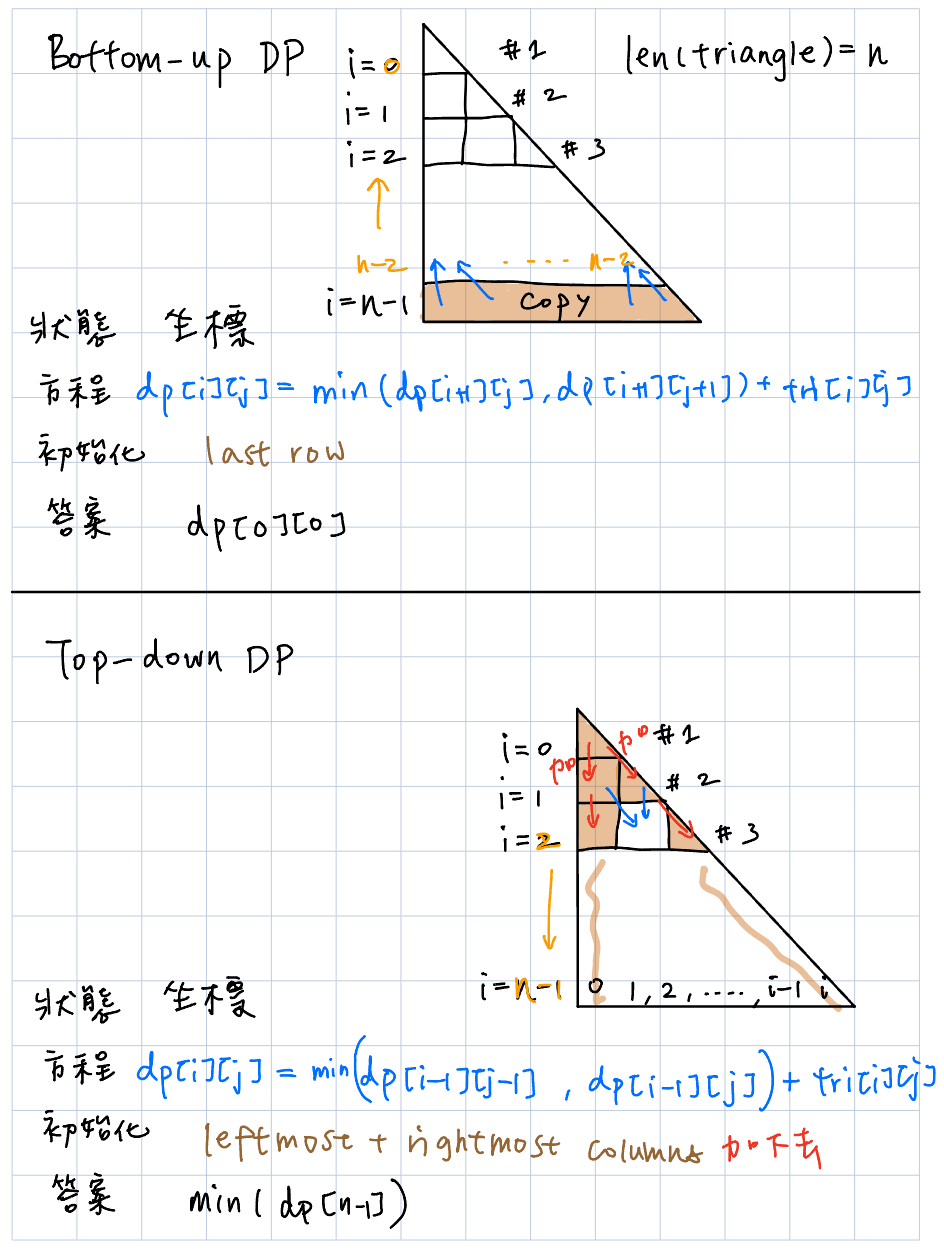 Bottom-up DP
len(triangle) = n
i = 0 #1
i = 1 #2
i = 2 #3
n-2 ---- n-2
i = n-1 copy
狀態 坐標
方程 dp[i][j] = min(dp[i+1][j], dp[i+1][j+1]) + tri[i][j]
初始化 last row
答案 dp[0][0]
Top-down DP
i = 0 #1
i = 1 #2
i = 2 #3
i = n-1 0 1, 2, ....., i-1 i
狀態 坐標
方程 dp[i][j] = min(dp[i-1][j-1], dp[i-1][j]) + tri[i][j]
初始化 leftmost + rightmost columns 加下去
答案 min(dp[n-1])